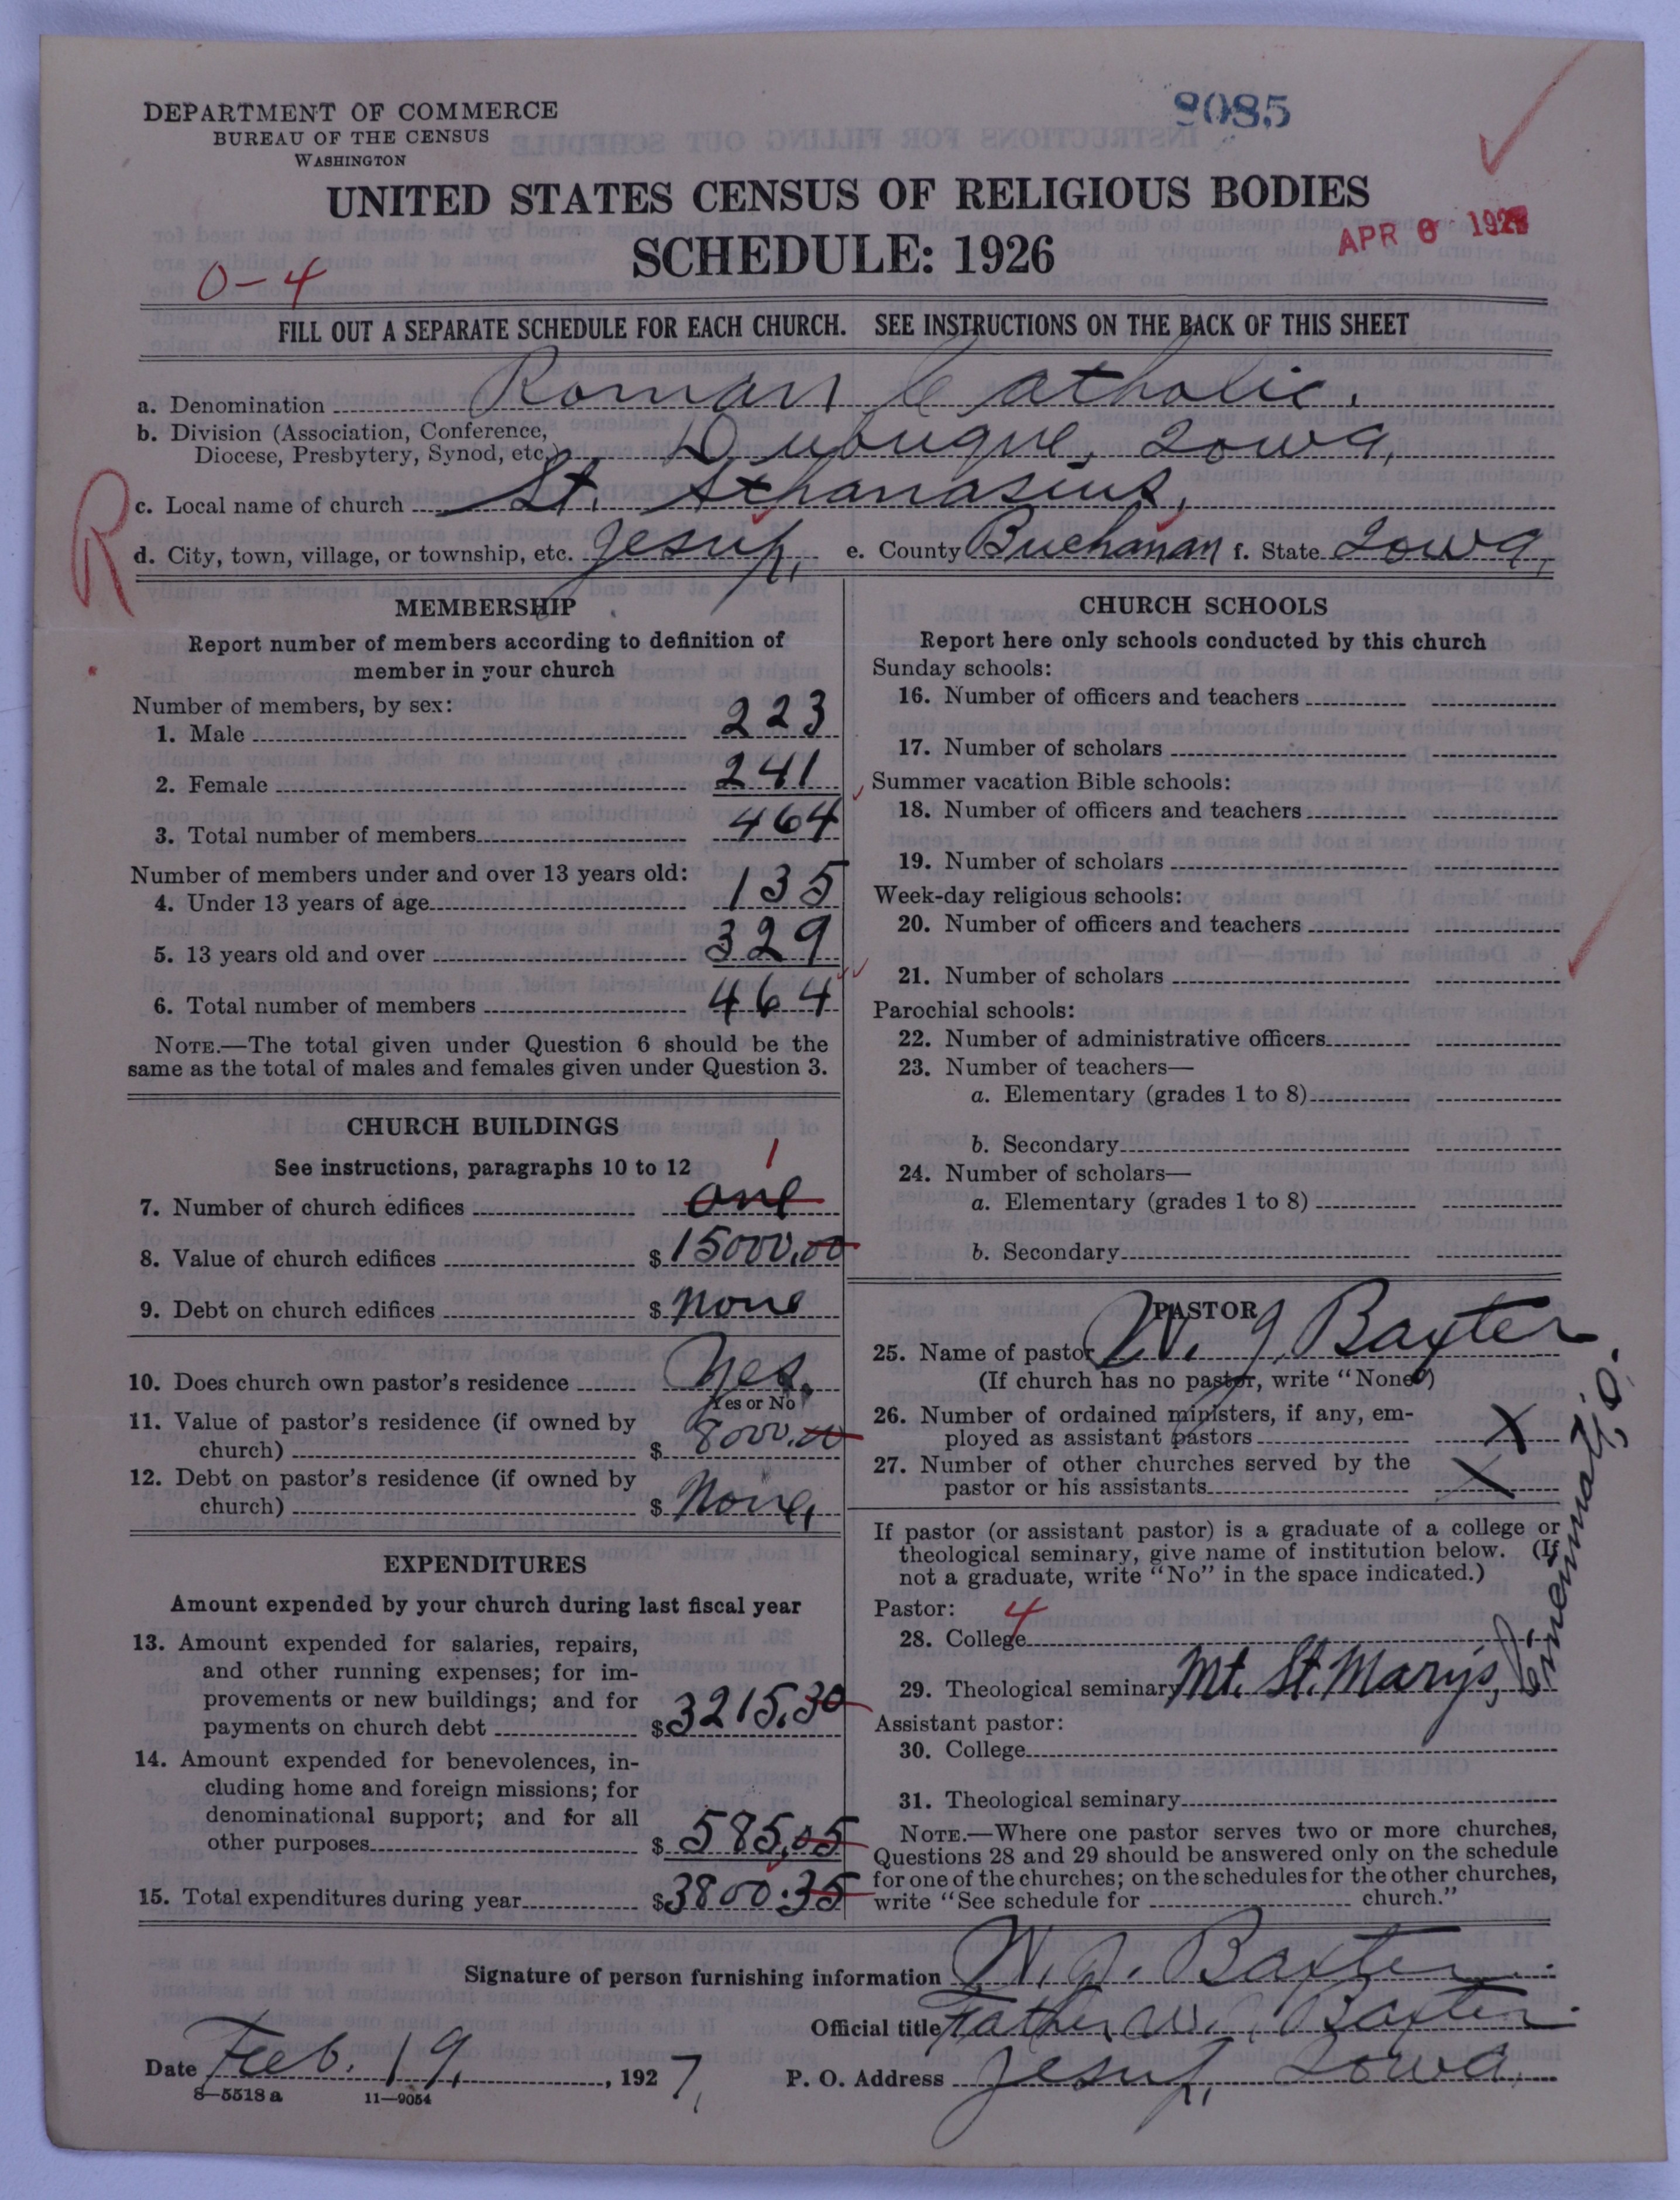 8085
DEPARTMENT OF COMMERCE
BUREAU OF THE CENSUS
WASHINGTON
UNITED STATES CENSUS OF RELIGIOUS BODIES
SCHEDULE: 1926
APR 6 192
0-4
FILL OUT A SEPARATE SCHEDULE FOR EACH CHURCH. SEE INSTRUCTIONS ON THE BACK OF THIS SHEET
a. Denomination Roman Catholic.
b. Division (Association, Conference, Diocese, Presbytery, Synod, etc.) Dubuque, Iowa,
R
c. Local name of church St. Athanasius,
d. City, town, village, or township, etc. Jesup, e. County Buchanan f. State Iowa,
MEMBERSHIP
Report number of members according to definition of
member in your church
Number of members, by sex:
1. Male 223
2. Female 241
3. Total number of members 464
Number of members under and over 13 years old:
4. Under 13 years of age 135
5. 13 years old and over 329
6. Total number of members 464
NOTE.—The total given under Question 6 should be the
same as the total of males and females given under Question 3.
CHURCH BUILDINGS
See instructions, paragraphs 10 to 12
1
7. Number of church edifices one
8. Value of church edifices $15000.00
9. Debt on church edifices $ None
10. Does church own pastor's residence Yes.
Yes or No
11. Value of pastor's residence (if owned by
church) $ 8000.00
12. Debt on pastor's residence (if owned by
church) $ None,
EXPENDITURES
Amount expended by your church during last fiscal year
13. Amount expended for salaries, repairs,
and other running expenses; for im-
provements or new buildings; and for
payments on church debt $3215.30
14. Amount expended for benevolences, in-
cluding home and foreign missions; for
denominational support; and for all
other purposes $ 585.05
15. Total expenditures during year $3800.35
CHURCH SCHOOLS
Report here only schools conducted by this church
Sunday schools:
16. Number of officers and teachers
17. Number of scholars
Summer vacation Bible schools:
18. Number of officers and teachers
19. Number of scholars
Week-day religious schools:
20. Number of officers and teachers
21. Number of scholars
Parochial schools:
22. Number of administrative officers
23. Number of teachers—
a. Elementary (grades 1 to 8)
b. Secondary
24. Number of scholars—
a. Elementary (grades 1 to 8)
b. Secondary
PASTOR
25. Name of pastor W. J. Baxter
(If church has no pastor, write "None")
26. Number of ordained ministers, if any, em-
ployed as assistant pastors X
27. Number of other churches served by the
pastor or his assistants X
If pastor (or assistant pastor) is a graduate of a college or
theological seminary, give name of institution below. (If
not a graduate, write "No" in the space indicated.)
Pastor: 4
28. College
29. Theological seminary Mt. St. Marys, Cinncinnati, O.
Assistant pastor:
30. College
31. Theological seminary
NOTE.—Where one pastor serves two or more churches,
Questions 28 and 29 should be answered only on the schedule
for one of the churches; on the schedules for the other churches,
write "See schedule for church."
Signature of person furnishing information W. J. Baxter.
Official title Father W. J. Baxter.
Date Feb. 19, 1927, P. O. Address Jesup, Iowa,
8—5518 a 11—9054